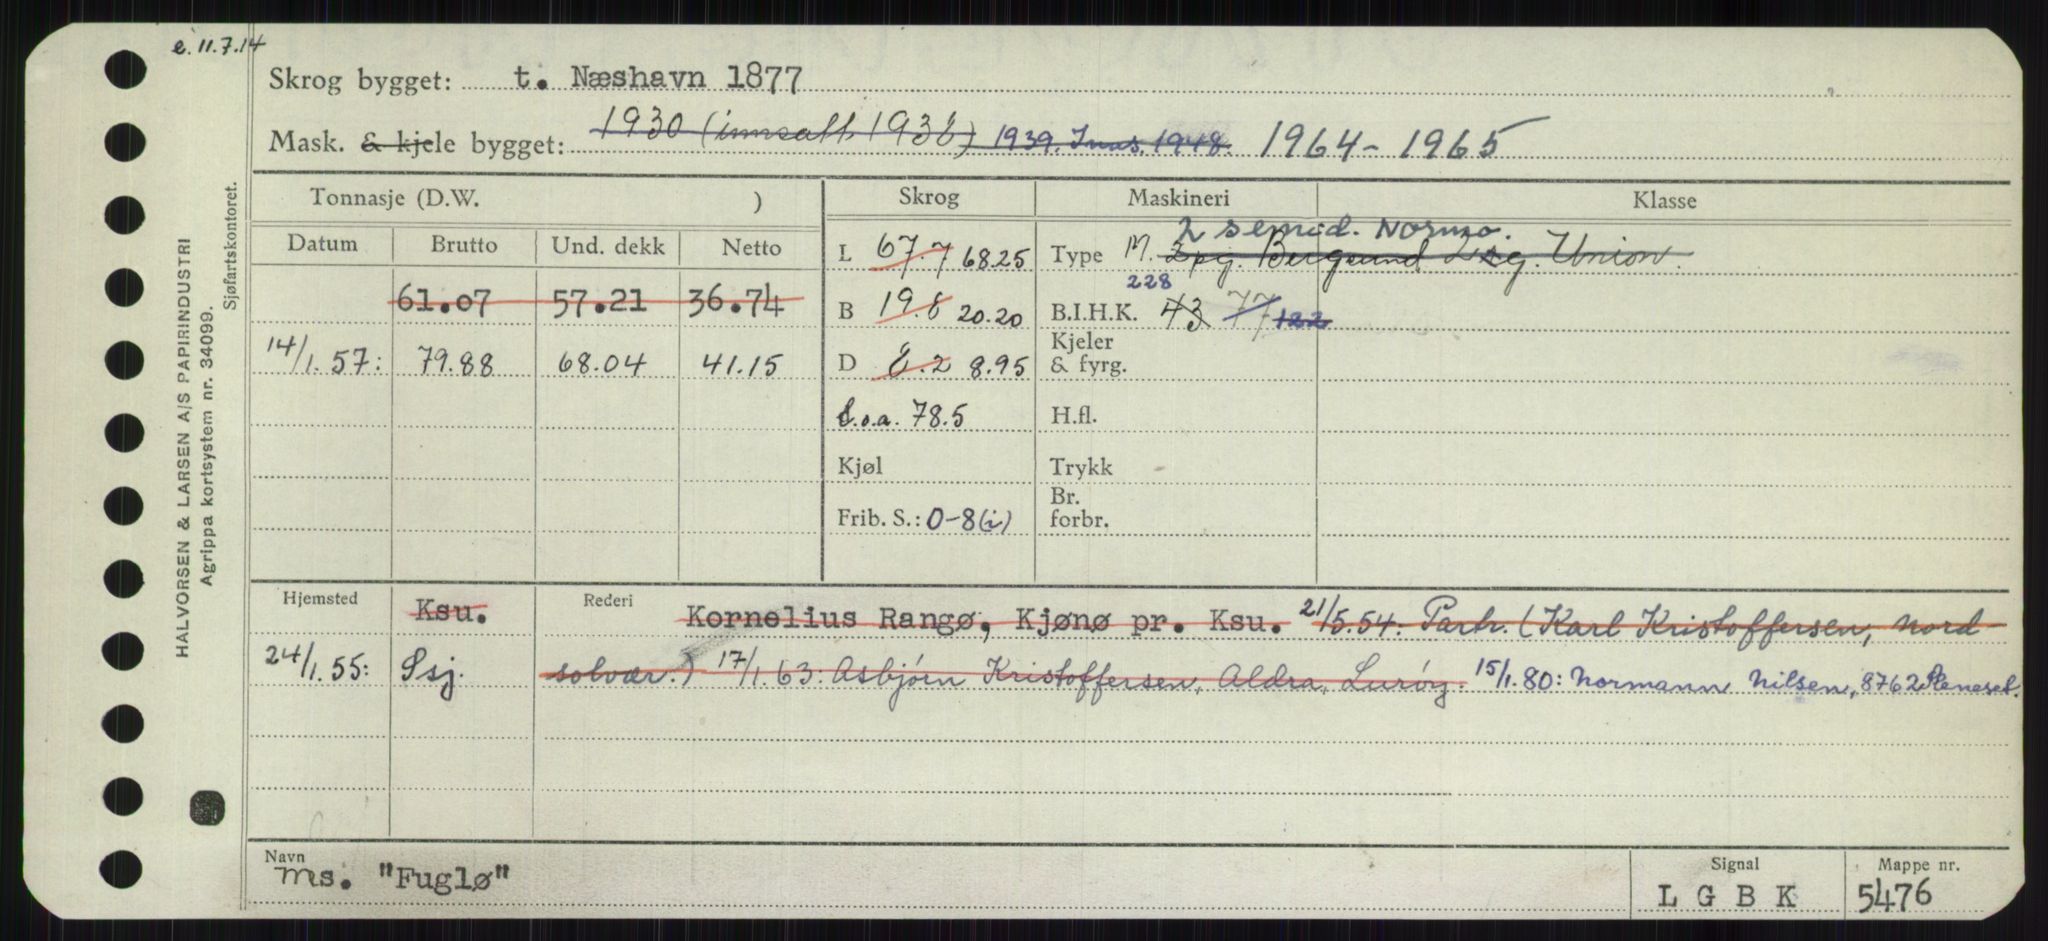 e. 11.7.14
Skrog bygget: t. Næshavn 1877
Mask. & kjele bygget: 1930 (innsatt 1938) 1939. Inns. 1948. 1964 - 1965
Tonnasje (D.W. )
Skrog
Maskineri
Klasse
Datum Brutto Und. dekk Netto
L 67.7 68.25
Type M. 2 semid. Normo.
2 pg. Bergsund 2 sg. Union.
61.07 57.21 36.74
B 19.8 20.20
228
B.I.H.K. 43 77 122
14/1.57: 79.88 68.04 41.15
D 8.2 8.95
Kjeler
& fyrg.
L.o.a. 78.5
H.fl.
Kjøl
Trykk
Frib. S.: 0-8(i)
Br.
forbr.
Hjemsted Ksu. Rederi Kornelius Rangø, Kjønø pr. Ksu. 21/5.54: Partr. (Karl Kristoffersen, Nord-
24/1.55: Ssj. solvær.) 17/1.63: Asbjørn Kristoffersen, Aldra, Lurøy. 15/1.80: Normann Nilsen, 8762 Sleneset.
Navn
Ms. "Fuglø"
Signal
L G B K
Mappe nr.
5476
HALVORSEN & LARSEN A/S PAPIRINDUSTRI
Agrippa kortsystem nr. 34099.
Sjøfartskontoret.